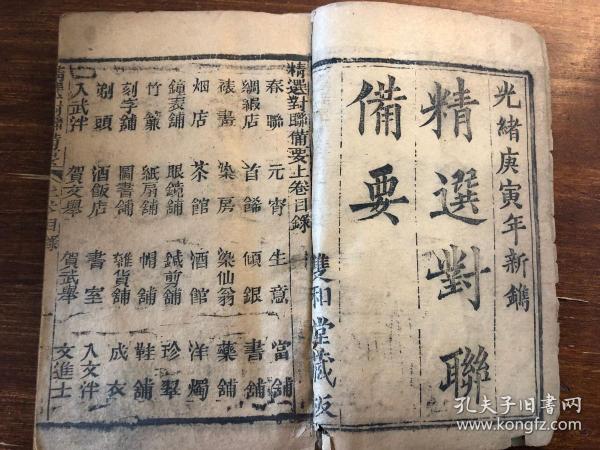 光緒庚寅年新鐫
精選對聯
備要
雙和堂藏板
精選對聯備要上卷目錄
春聯 元宵 生意 當舖
綢緞店 首餙 傾銀 書舖
裱畫 染房 染仙翁 藥舖
烟店 茶館 酒館 洋燭
鐘表舖 眼鏡舖 鍼剪舖 珍翠
竹簾 紙扇舖 帽舖 鞋舖
刻字舖 圖書舖 雜貨舖 成衣
剃頭 酒飯店 書室 入文泮
入武泮 賀文舉 賀武舉 文進士
孔夫子旧书网
www.kongfz.com